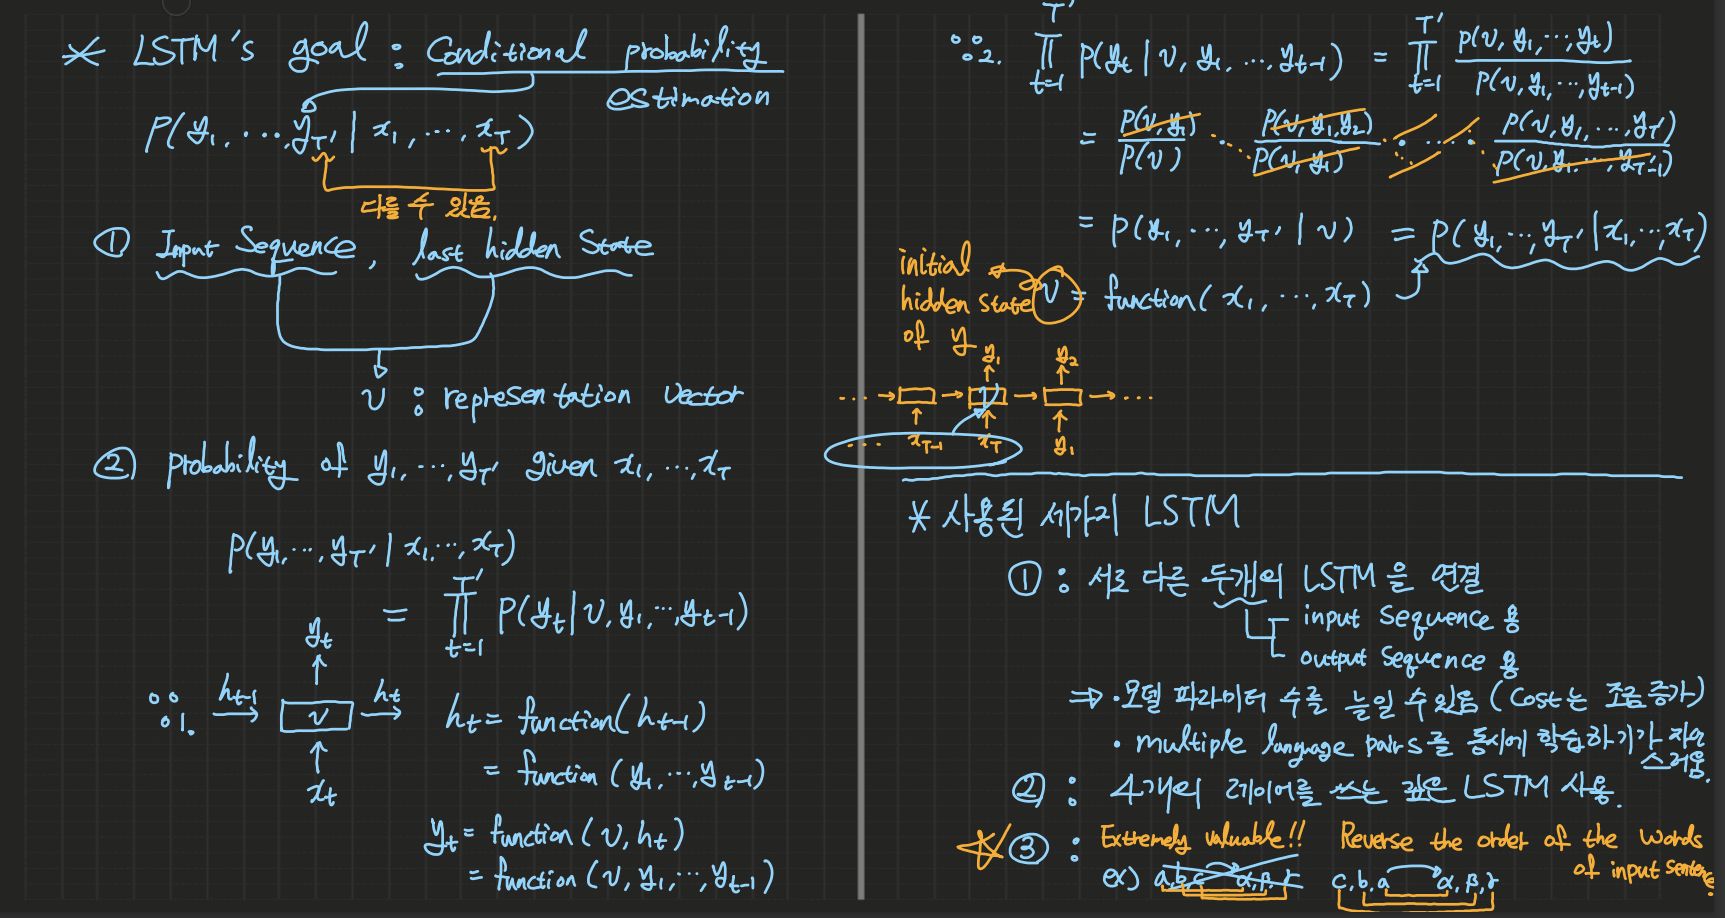 * LSTM's goal : Conditional probability
estimation
P(y₁, ⋯, y_T' | x₁, ⋯, x_T)
다를 수 있음.
① Input Sequence, last hidden State
v : representation vector
② probability of y₁, ⋯, y_T' given x₁, ⋯, x_T
P(y₁, ⋯, y_T' | x₁, ⋯, x_T)
= ∏_{t=1}^{T'} P(y_t | v, y₁, ⋯, y_{t-1})
∵1. h_{t-1} → v → h_t
y_t
x_t
h_t = function(h_{t-1})
= function(y₁, ⋯, y_{t-1})
y_t = function(v, h_t)
= function(v, y₁, ⋯, y_{t-1})
∵2. ∏_{t=1}^{T'} P(y_t | v, y₁, ⋯, y_{t-1}) = ∏_{t=1}^{T'} P(v, y₁, ⋯, y_t) / P(v, y₁, ⋯, y_{t-1})
= P(v, y₁)/P(v) · P(v, y₁, y₂)/P(v, y₁) · ⋯ · P(v, y₁, ⋯, y_T')/P(v, y₁, ⋯, y_{T'-1})
= P(y₁, ⋯, y_T' | v) = P(y₁, ⋯, y_T' | x₁, ⋯, x_T)
v = function(x₁, ⋯, x_T)
initial
hidden state
of y
y₁ y₂
⋯ → → v → → ⋯
⋯ x_{T-1} x_T y₁
* 사용된 세가지 LSTM
① : 서로 다른 두개의 LSTM을 연결
input sequence 용
output sequence 용
⇒ · 모델 파라미터 수를 늘일 수 있음 (Cost는 조금 증가)
· multiple language pairs를 동시에 학습하기가 자연
스러움.
② : 4개의 레이어를 쓰는 깊은 LSTM 사용.
☆ ③ : Extremely valuable!! Reverse the order of the words
of input sentence
ex) a,b,c → α,β,γ c,b,a → α,β,γ